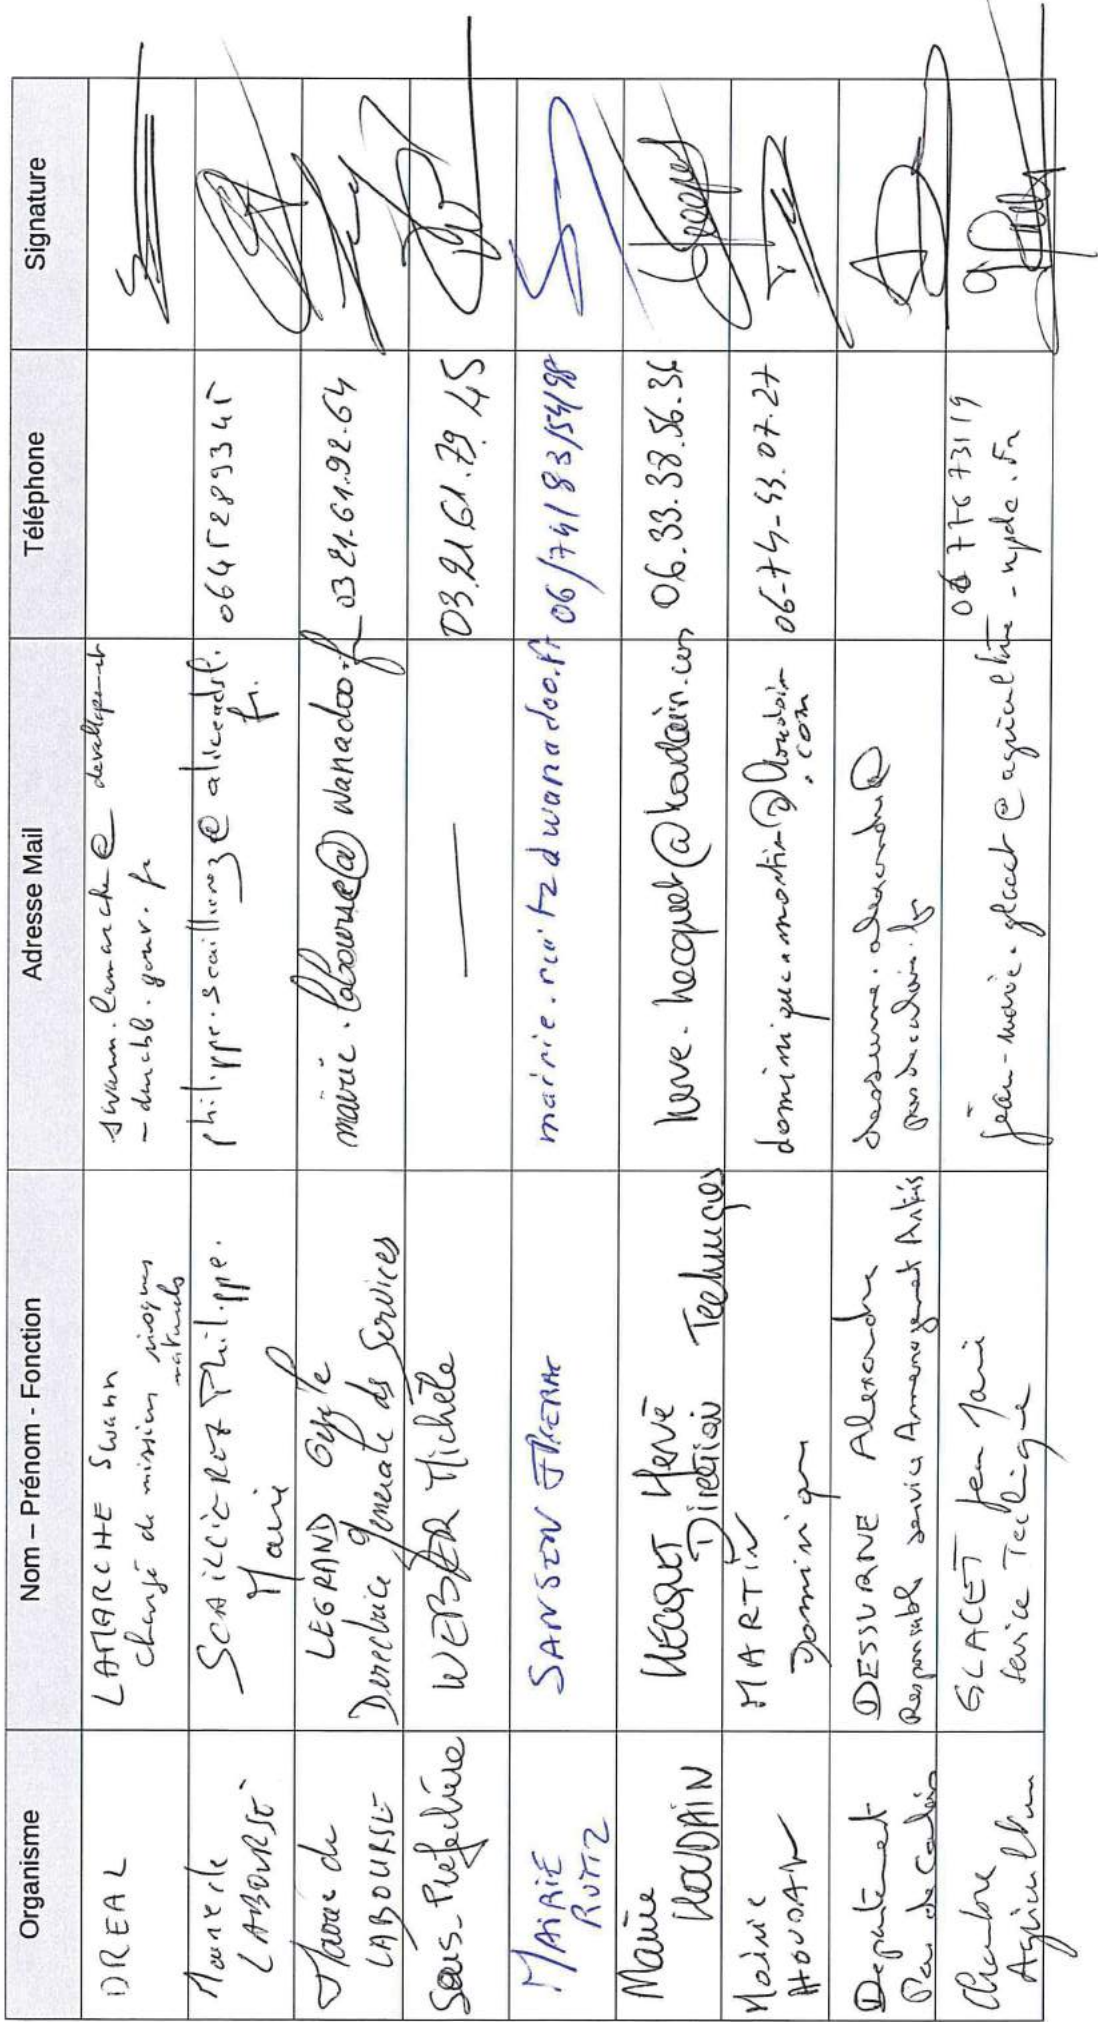 Organisme
Nom – Prénom - Fonction
Adresse Mail
Téléphone
Signature
DREAL
LAMARCHE Swann
chargé de mission risques
naturels
swann.lamarche@developpement
-durable.gouv.fr
Mairie de
LABOURSE
SCAILLIEREZ Philippe.
Maire
philippe.scaillierez@aliceadsl.
fr.
0645289345
Mairie de
LABOURSE
LEGRAND Gysele
Directrice Générale des Services
mairie.labourse@wanadoo.fr
03 21.61.92.64
Sous-Préfecture
WEBER Michèle
—
03.21.61.79.45
MAIRIE
RUITZ
SANSEN
mairie.ruitz@wanadoo.fr
06/74/83/54/98
Mairie
HOUDAIN
HECQUET Hervé
Direction Techniques
herve.hecquet@houdain.com
06.33.38.56.36
Mairie
HOUDAIN
MARTIN
Dominique
dominique.martin@houdain
.com
06-74-93.07.27
Département
Pas de Calais
DESSURNE Alexandre
Responsable service Aménagement Artois
dessurne.alexandre@
pasdecalais.fr
Chambre
Agriculture
GLACET Jean Marie
Service Technique
jean-marie.glacet@agriculture-npdc.fr
0677673119